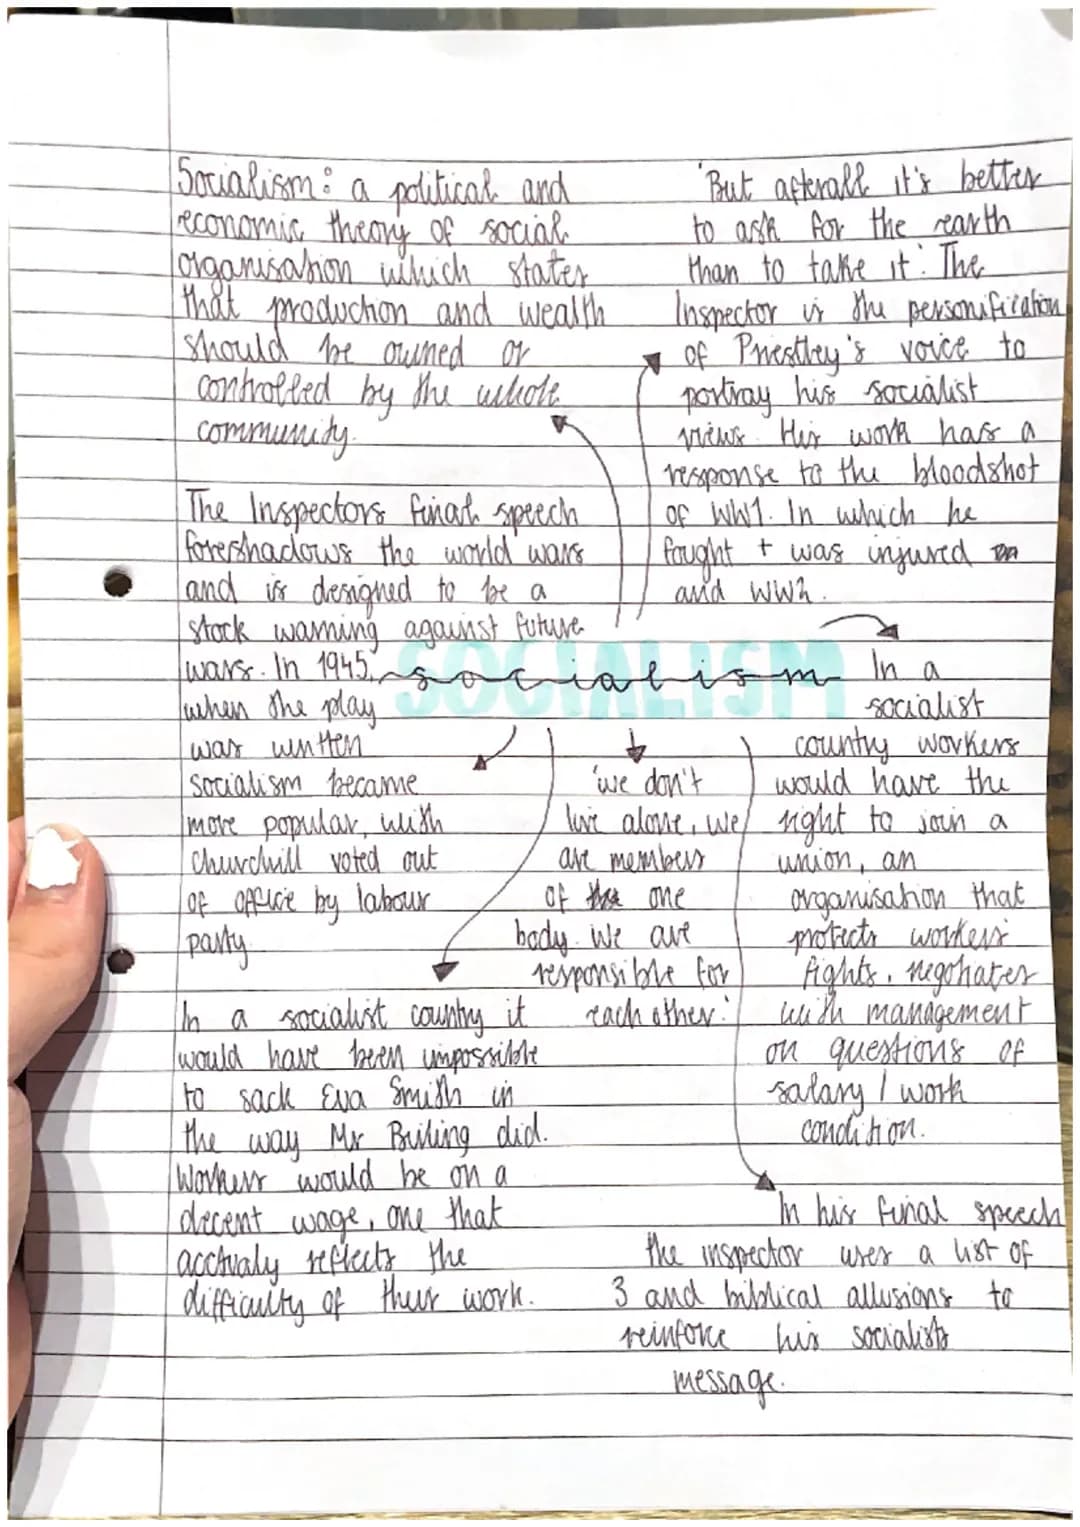 Socialism: a political and
economic theory of social
organisation which states
that production and wealth
should be owned or
controlled by the whole
community.
'But afterall it's better
to ask for the earth
than to take it'. The
Inspector is the personification
of Priestley's voice to
portray his socialist
views. His work has a
response to the bloodshot
of WW1. In which he
fought + was injured
and WW2.
The Inspectors final speech
foreshadows the world wars
and is designed to be a
stock warning against future
wars. In 1945,
when the play
was written
socialism became
more popular, with
Churchill voted out
of office by labour
party
SOCIALISM
socialism
In a
socialist
country workers
would have the
right to join a
union, an
organisation that
protects workers'
rights, negotiates
with management
on questions of
salary / work
condition.
'we don't
live alone, we
are members
of one
body. We are
responsible for
each other.'
In a socialist country it
would have been impossible
to sack Eva Smith in
the way Mr Briling did.
Workers would be on a
decent wage, one that
acctualy reflects the
difficulty of their work.
In his final speech
the inspector uses a list of
3 and biblical allusions to
reinforce his socialists
message.